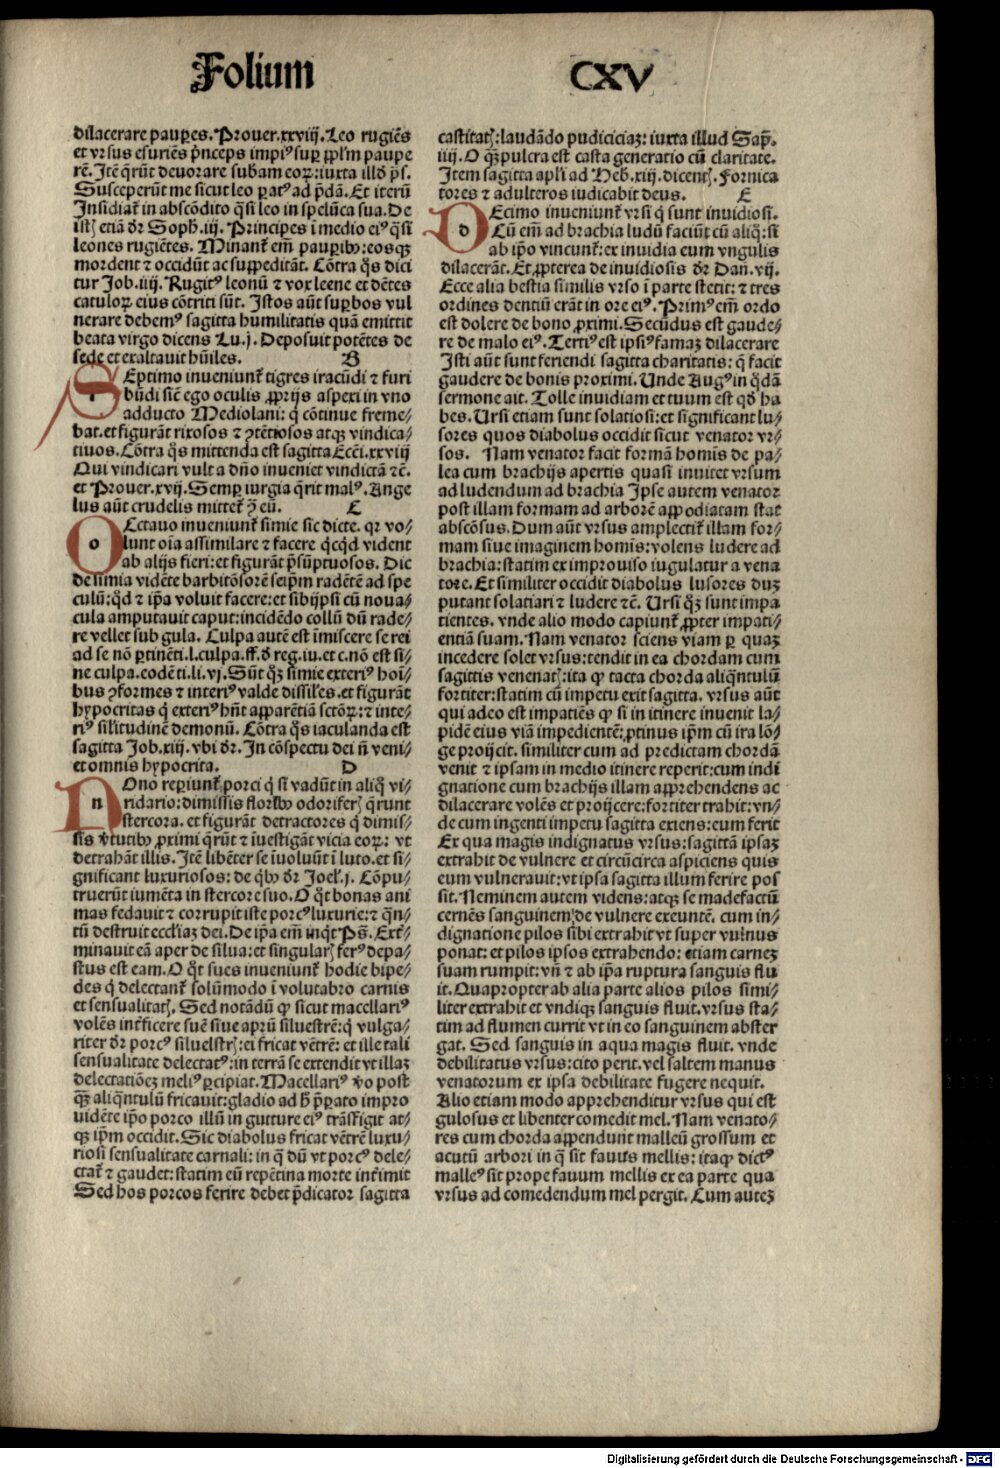 Folium CXV
dilacerare paup̲es. Prouer. xxviij. Leo rugiēs
et vrsus esuriēs p̄nceps impiꝰ suꝑ ppl̄m paupe
rē. Itē q̄rūt deuorare subām eoꝝ: iuxta illd̄ p̄s.
Susceperūt me sicut leo ꝑatꝰ ad p̄dā. Et iterū
Insidiat̄ in abscōdito q̄si leo in spelūca sua. De
istꝭ etiā dr̄ Soph. iij. Principes ī medio eiꝰ q̄si
leones rugiētes. Minant̄ em̄ pauꝑibꝰ: eosqꝫ
mordent ⁊ occidūt ac suppeditāt. Cōtra q̄s dici
tur Job. iiij. Rugitꝰ leonū ⁊ vox leene et dētes
catuloꝝ eius cōtriti sūt. Istos aūt suꝑbos vul
nerare debemꝰ sagitta humilitatis quā emittit
beata virgo dicens Lu. j. Deposuit potētes de
sede et exaltauit hūiles. B
SEptimo inueniunt̄ tigres iracūdi ⁊ furi
būdi sic̄ ego oculis ꝓprijs asperi in vno
adducto Mediolani: q̄ cōtinue freme⸗
bat. et figurāt rixosos ⁊ ꝯtētiosos atqꝫ vindica⸗
tiuos. Cōtra q̄s mittenda est sagitta Eccī. xxviij
Qui vindicari vult a dn̄o inueniet vindictā ⁊c̄.
et Prouer. xvij. Semꝑ iurgia q̄rit malꝰ. Ange
lus aūt crudelis mittet̄ ꝯ̄ eū. C
OCctauo inueniunt̄ simie sic dicte. qꝛ vo⸗
lunt oīa assimilare ⁊ facere qͥcqͥd vident
ab alijs fieri: et figurāt p̄sūptuosos. Dic
de simia vidēte barbitōsorē seip̄m radētē ad spe
culū: qͥd ⁊ ip̄a voluit facere: et sibijpsi cū noua⸗
cula amputauit caput: incidēdo collū dū rade⸗
re vellet sub gula. Culpa autē est īmiscere se rei
ad se nō ꝑtinēti. l. culpa. ff. d̄ reg. iu. et c. nō est si⸗
ne culpa. codē ti. li. vj. Sūt q̄ꝫ simie exteriꝰ hoī⸗
bus ꝯformes ⁊ interiꝰ valde dissil̄es. et figurāt
hypocritas q̄ exteriꝰ hn̄t apparētiā sctōꝝ: ⁊ inte⸗
riꝰ sil̄itudinē demonū. Cōtra q̄s iaculanda est
sagitta Job. xiij. vbi dr̄. In cōspectu dei n̄ veni⸗
et omnis hypocrita. D
NOno reꝑiunt̄ porci q̄ si vadūt in aliq̄ vi⸗
ridario: dimissis floribꝰ odoriferꝭ q̄runt
stercora. et figurāt detractores q̄ dimis⸗
sis v̄tutibꝰ ꝓximi q̄rūt ⁊ īuestigāt vicia eoꝝ: vt
detrahāt illis. Itē libēter se īuoluūt ī luto. et si⸗
gnificant luxuriosos: de q̄bꝰ dr̄ Joel̄. j. Cōpu⸗
truerūt iumēta in stercore suo. O q̄t bonas ani
mas fedauit ⁊ corrupit iste porcꝰ luxurie: ⁊ q̄n⸗
tū destruit eccl̄iaꝫ dei. De ip̄a em̄ inqͥt Ps̄. Ext̄⸗
minauit eā aper de silua: et singularꝭ ferꝰ depa⸗
stus est eam. O q̄t sues inueniunt̄ hodie bipe⸗
des q̄ delectant̄ solūmodo ī volutabro carnis
et sensualitatꝭ. Sed notādū ꝙ sicut macellariꝰ
volēs int̄ficere suē siue aprū siluestrē: q̄ vulga⸗
riter dr̄ porcꝰ siluestrꝭ: ei fricat vētrē: et ille tali
sensualitate delectatꝰ: in terrā se extendit vt illaꝫ
delectationēꝫ meliꝰ ꝑcipiat. Macellariꝰ v̄o post
q̄ꝫ aliq̄ntulū fricauit: gladio ad h̄ p̄ꝑato impro
uidēte ip̄o porco illū in gutture eiꝰ trāsfigit at⸗
qꝫ ip̄m occidit. Sic diabolus fricat vētrē luxu⸗
riosi sensualitate carnali: in q̄ dū vt porcꝰ dele⸗
ctat̄ ⁊ gaudet: statim eū repētina morte int̄imit
Sed hos porcos ferire debet p̄dicator sagitta
castitatꝭ: laudādo pudiciciaꝫ: iuxta illud Sap̄.
iiij. O q̄ꝫ pulcra est casta generatio cū claritate.
Item sagitta apl̄i ad Heb. xiij. dicentꝭ. Fornica
tores ⁊ adulteros iudicabit deus. E
DEcimo inueniunt̄ vrsi q̄ sunt inuidiosi.
Cū em̄ ad brachia ludū faciūt cū aliq̄: si
ab ip̄o vincunt̄: ex inuidia eum vngulis
dilacerāt. Et ꝓpterea de inuidiosis dr̄ Dan. vij.
Ecce alia bestia similis vrso ī parte stetit: ⁊ tres
ordines dentiū erāt in ore eiꝰ. Primꝰ em̄ ordo
est dolere de bono ꝓximi. Secūdus est gaude⸗
re de malo eiꝰ. Tertiꝰ est ipsiꝰ famaꝫ dilacerare
Isti aūt sunt feriendi sagitta charitatis: q̄ facit
gaudere de bonis proximi. Unde Augꝰ in q̄dā
sermone ait. Tolle inuidiam et tuum est qd̄ ha
bes. Ursi etiam sunt solatiosi: et significant lu⸗
sores quos diabolus occidit sicut venator vr⸗
sos. Nam venator facit formā homīs de pa⸗
lea cum brachijs apertis quasi inuitet vrsum
ad ludendum ad brachia Ipse autem venator
post illam formam ad arborē appodiatam stat
abscōsus. Dum aūt vrsus amplectit̄ illam for⸗
mam siue imaginem homīs: volens ludere ad
brachia: statim ex improuiso iugulatur a vena
tore. Et similiter occidit diabolus lusores duꝫ
putant solatiari ⁊ ludere ⁊c̄. Ursi q̄ꝫ sunt impa
tientes. vnde alio modo capiunt̄ ꝓpter impati⸗
entiā suam. Nam venator sciens viam ꝑ quaꝫ
incedere solet vrsus: tendit in ea chordam cum
sagittis venenatꝭ: ita ꝙ tacta chorda aliq̄ntulū
fortiter: statim cū impetu exit sagitta. vrsus aūt
qui adeo est impatiēs ꝙ si in itinere inuenit la⸗
pidē eius viā impedientē: ꝓtinus ip̄m cū ira lō⸗
ge proijcit. similiter cum ad predictam chordā
venit ⁊ ipsam in medio itinere reperit: cum indi
gnatione cum brachijs illam apprehendens ac
dilacerare volēs et proijcere: fortiter trahit: vn⸗
de cum ingenti impetu sagitta exiens: eum ferit
Ex qua magis indignatus vrsus: sagittā ipsaꝫ
extrahit de vulnere et circūcirca aspiciens quis
eum vulnerauit: vt ipsa sagitta illum ferire pos
sit. Neminem autem videns: atqꝫ se madefactū
cernēs sanguinem: de vulnere exeuntē. cum in⸗
dignatione pilos sibi extrahit vt super vulnus
ponat: et pilos ipsos extrahendo: etiam carneꝫ
suam rumpit: vn̄ ⁊ ab ip̄a ruptura sanguis flu
it. Quapropter ab alia parte alios pilos simi⸗
liter extrahit et vndiqꝫ sanguis fluit. vrsus sta⸗
tim ad flumen currit vt in eo sanguinem abster
gat. Sed sanguis in aqua magis fluit. vnde
debilitatus vrsus: cito perit. vel saltem manus
venatorum ex ipsa debilitate fugere nequit.
Alio etiam modo apprehenditur vrsus qui est
gulosus et libenter comedit mel. Nam venato⸗
res cum chorda appendunt malleū grossum et
acutū arbori in q̄ sit fauus mellis: ita ꝙ dictꝰ
malleꝰ sit prope fauum mellis ex ea parte qua
vrsus ad comedendum mel pergit. Cum auteꝫ
Digitalisierung gefördert durch die Deutsche Forschungsgemeinschaft - DFG